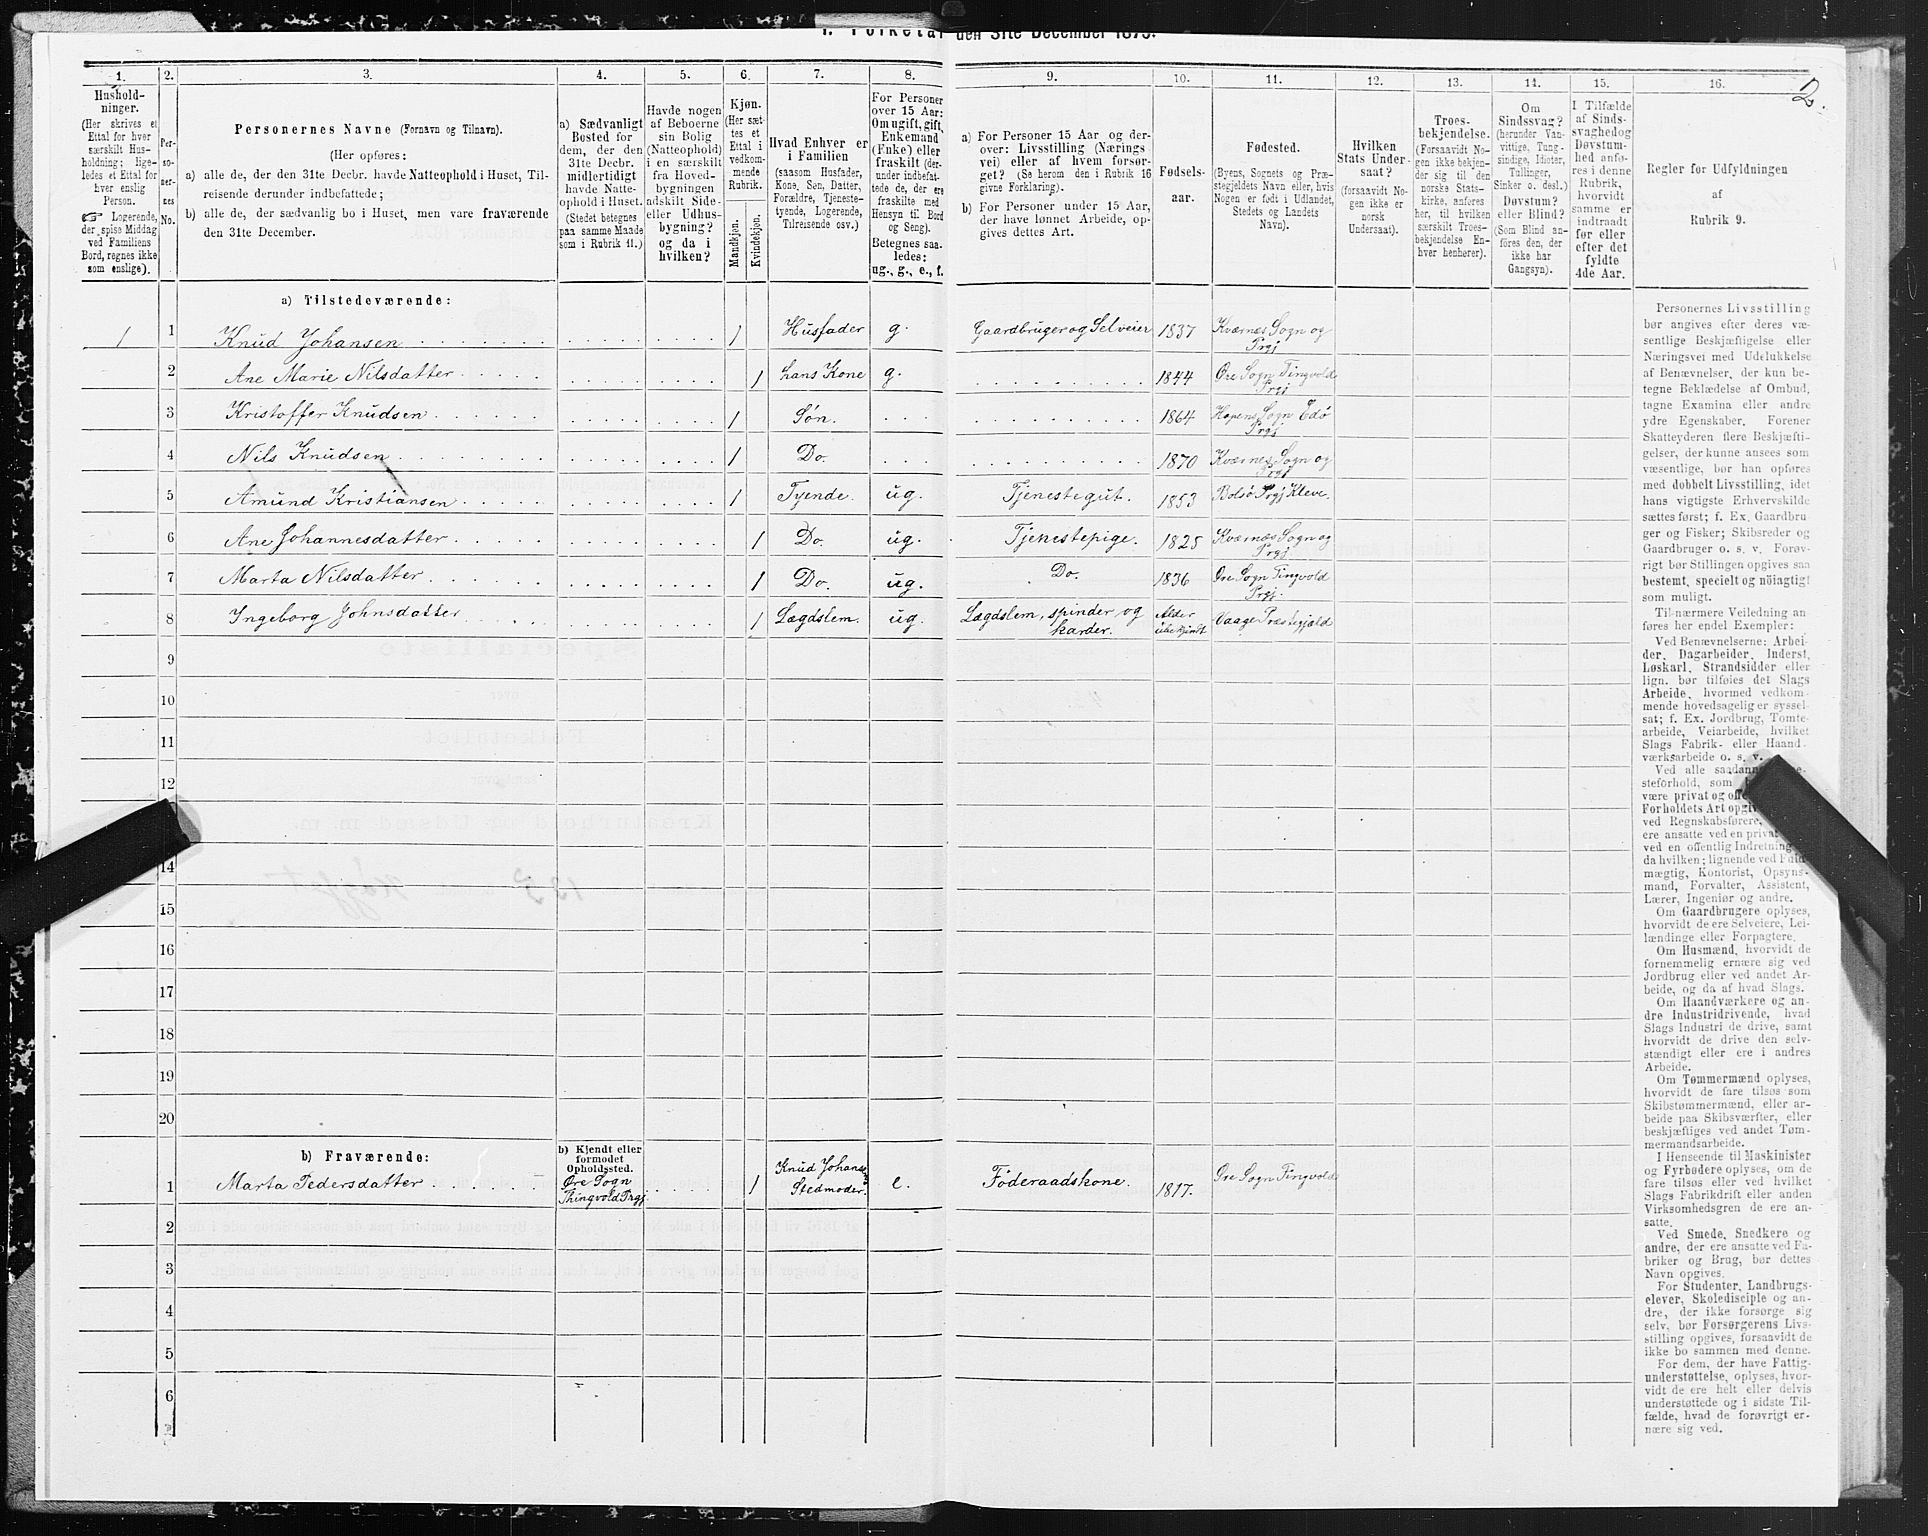 1. Folketal den 31te December 1875.
2.
1.
2.
3.
4.
5.
6.
7.
8.
9.
10.
11.
12.
13.
14.
15.
16.
Hushold-
ninger.
(Her skrives et
Ettal for hver
særskilt Hus-
holdning; lige-
ledes et Ettal for
hver enslig
Person.
☞ Logerende,
der spise Middag
ved Familiens
Bord, regnes ikke
som enslige).
Per-
so-
ner-
nes
No.
Personernes Navne (Fornavn og Tilnavn).
(Her opføres:
a) alle de, der den 31te Decbr. havde Natteophold i Huset, Til-
reisende derunder indbefattede;
b) alle de, der sædvanlig bo i Huset, men vare fraværende
den 31te December.
a) Sædvanligt
Bosted for
dem, der den
31te Decbr.
midlertidigt
havde Natte-
ophold i Huset.
(Stedet betegnes
paa samme Maade
som i Rubrik 11.)
Havde nogen
af Beboerne
sin Bolig
(Natteophold)
i en særskilt
fra Hoved-
bygningen
adskilt Side-
eller Udhus-
bygning?
og da i
hvilken?
Kjøn.
(Her sæt-
tes et
Ettal i
vedkom-
mende
Rubrik.
Mandkjøn.
Kvindekjøn.
Hvad Enhver er
i Familien
(saasom Husfader,
Kone, Søn, Datter,
Forældre, Tjeneste-
tyende, Logerende,
Tilreisende osv.)
For Personer
over 15 Aar:
Om ugift, gift,
Enkemand
(Enke) eller
fraskilt (der-
under indbefat-
tede de, der ere
fraskilte med
Hensyn til Bord
og Seng).
Betegnes saa-
ledes:
ug., g., e., f.
a) For Personer 15 Aar og der-
over: Livsstilling (Nærings-
vei) eller af hvem forsør-
get? (Se herom den i Rubrik 16
givne Forklaring).
b) For Personer under 15 Aar,
der have lønnet Arbeide, op-
gives dettes Art.
Fødsels-
aar.
Fødested.
(Byens, Sognets og Præ-
stegjeldets Navn eller, hvis
Nogen er født i Udlandet,
Stedets og Landets
Navn).
Hvilken
Stats Under-
saat?
(forsaavidt No-
gen ikke er
norsk
Undersaat).
Troes-
bekjendelse.
(Forsaavidt No-
gen ikke bekjen-
der sig til den
norske Stats-
kirke, anføres
her, til hvilken
særskilt Troes-
bekjendelse En-
hver henhører).
Om
Sindssvag?
(herunder Van-
vittige, Tung-
sindige, Idioter,
Tullinger,
Sinker o. desl.)
Døvstum?
eller Blind?
(Som Blind an-
føres den, der
ikke har
Gangsyn).
I Tilfælde
af Sinds-
svaghed og
Døvstum-
hed anfø-
res i denne
Rubrik,
hvorvidt
samme er
indtraadt
før eller
efter det
fyldte
4de Aar.
Regler for Udfyldningen
af
Rubrik 9.
a) Tilstedeværende:
1 1 Knud Johansen 1 Husfader g. Gaardbruger og Selveier 1837 Kværnes Sogn og
Prgj
2 Ane Marie Nilsdatter 1 hans Kone g. 1844 Øre Sogn Tingvold
Prgj
3 Kristoffer Knudsen 1 Søn. 1864 Hopens Sogn Edø
Prgj
4 Nils Knudsen 1 Do. 1870 Kværnes Sogn og
Prgj
5 Amund Kristiansen 1 Tyende. ug. Tjenestegut. 1853 Bolsø Prgj Kleve.
6 Ane Johannesdatter 1 Do. ug. Tjenestepige. 1825 Kværnæs Sogn og
Prgj
7 Marta Nilsdatter 1 Do. ug. Do. 1836 Øre Sogn Tingvold
Prgj.
8 Ingeborg Johnsdatter 1 Lægdslem. ug. Lægdslem, spinder og
karder. Alder
ubekjendt Vaage Præstegjæld
9
10
11
12
14
15
16
17
18
19
20
b) Fraværende:
b) Kjendt eller
formodet
Opholdssted.
1 Marta Pedersdatter Øre Sogn
Thingvold Prgj. 1 Knud Johansens
Stedmoder. e. Föderaadskone. 1817. Øre Sogn Tingvold
2
3
4
5
6
Personernes Livsstilling
bør angives efter deres væ-
sentlige Beskjæftigelse eller
Næringsvei med Udelukkelse
af Benævnelser, der kun be-
tegne Beklædelse af Ombud,
tagne Examina eller andre
ydre Egenskaber. Forener
Skatteyderen flere Beskjæfti-
gelser, der kunne ansees som
væsentlige, bør han opføres
med dobbelt Livsstilling, idet
hans vigtigste Erhvervskilde
sættes først; f. Ex. Gaardbru-
ger og Fisker; Skibsreder og
Gaardbruger o. s. v. Forøv-
rigt bør Stillingen opgives saa
bestemt, specielt og nöiagtigt
som muligt.
Til nærmere Veiledning an-
føres her endel Exempler:
Ved Benævnelserne: Arbei-
der, Dagarbeider, Inderst,
Løskarl, Strandsidder eller
lign. bør tilføies det Slags
Arbeide, hvormed vedkom-
mende hovedsagelig er syssel-
sat; f. Ex. Jordbrug, Tomte-
arbeide, Veiarbeide, hvilket
Slags Fabrik- eller Haand-
værksarbeide o. s. v.
Ved alle saadanne
steforhold, som
være privat og
Forholdets Art
ved Regnskabsførere,
ere ansatte ved en privat
ved en offentlig Indretning
da hvilken; lignende ved Fuld-
mægtig, Kontorist, Opsyns-
mand, Forvalter, Assistent,
Lærer, Ingeniør og andre.
Om Gaardbrugere oplyses,
hvorvidt de ere Selveiere, Lei-
lændinge eller Forpagtere.
Om Husmænd, hvorvidt de
fornemmelig ernære sig ved
Jordbrug eller ved andet Ar-
beide, og da af hvad Slags.
Om Haandværkere og an-
dre Industridrivende, hvad
Slags Industri de drive, samt
hvorvidt de drive den selv-
stændigt eller ere i andres
Arbeide.
Om Tømmermænd oplyses,
hvorvidt de fare tilsøs som
Skibstømmermænd, eller ar-
beide paa Skibsværfter, eller
beskjæftiges ved andet Tøm-
mermandsarbeide.
I Henseende til Maskinister
og Fyrbødere oplyses, om de
fare tilsøs eller ved hvilket
Slags Fabrikdrift eller anden
Virksomhedsgren de ere an-
satte.
Ved Smede, Snedkere og
andre, der ere ansatte ved Fa-
briker og Brug, bør dettes
Navn opgives.
For Studenter, Landbrugs-
elever, Skoledisciple og an-
dre, der ikke forsørge sig
selv, bør Forsørgerens Livs-
stilling opgives, forsaavidt de
ikke bo sammen med denne.
For dem, der have Fattig-
understøttelse, oplyses, hvor-
vidt de ere helt eller delvis
understøttede og i sidste Til-
fælde, hvad de forøvrigt er-
nære sig ved.